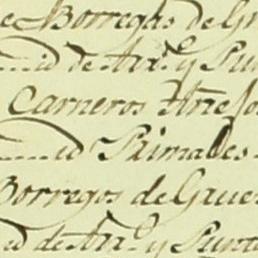 e Borregos de Gru
id de Arr.s y Pun
Carneros Añejos
id Primales
Borregos de Grue
id de Arr.s y Punta